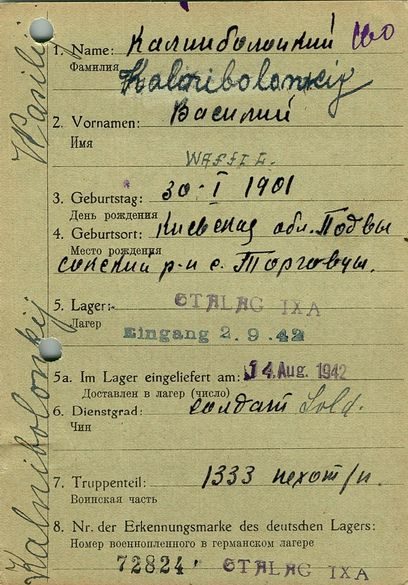 Wasilij
Kalnibolonkij
1. Name: Калниболоцкий
Фамилия
Kalnibolonkij
2. Vornamen: Василий
Имя
WASSIL.
3. Geburtstag: 30-I 1901
День рождения
4. Geburtsort: Киевская обл. Подвы
Место рождения
сокский р-н с. Торговцы.
5. Lager: STALAG IXA
Лагер
Eingang 2.9.42
5a. Im Lager eingeliefert am: 14. Aug. 1942
Доставлен в лагер (число)
6. Dienstgrad: солдат Sold.
Чин
7. Truppenteil: 1333 пехот/п.
Воинская часть
8. Nr. der Erkennungsmarke des deutschen Lagers:
Номер военнопленного в германском лагере
72824 STALAG IXA